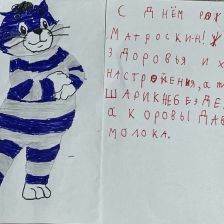 С ДНЁМ РОЖ
МАТРОСКИН! Ж
ЗДОРОВЬЯ И Х
НАСТРОЕНИЯ, А Т
ШАРИК НЕ БЕЗДЕ
А КОРОВЫ ДАВ
МОЛОКА.